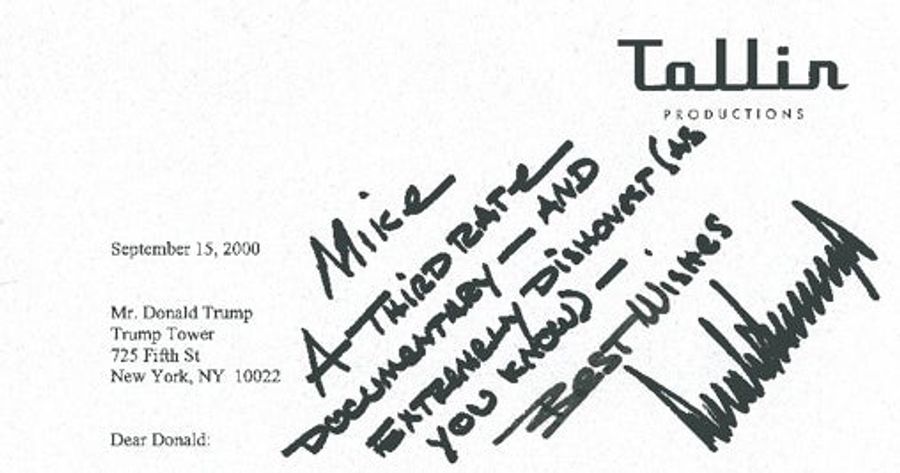 Tollin
PRODUCTIONS
September 15, 2000
Mr. Donald Trump
Trump Tower
725 Fifth St
New York, NY 10022
Dear Donald:
Mike
A THIRD RATE
DOCUMENTARY — AND
EXTREMELY DISHONEST (AS
YOU KNOW) —
Best Wishes